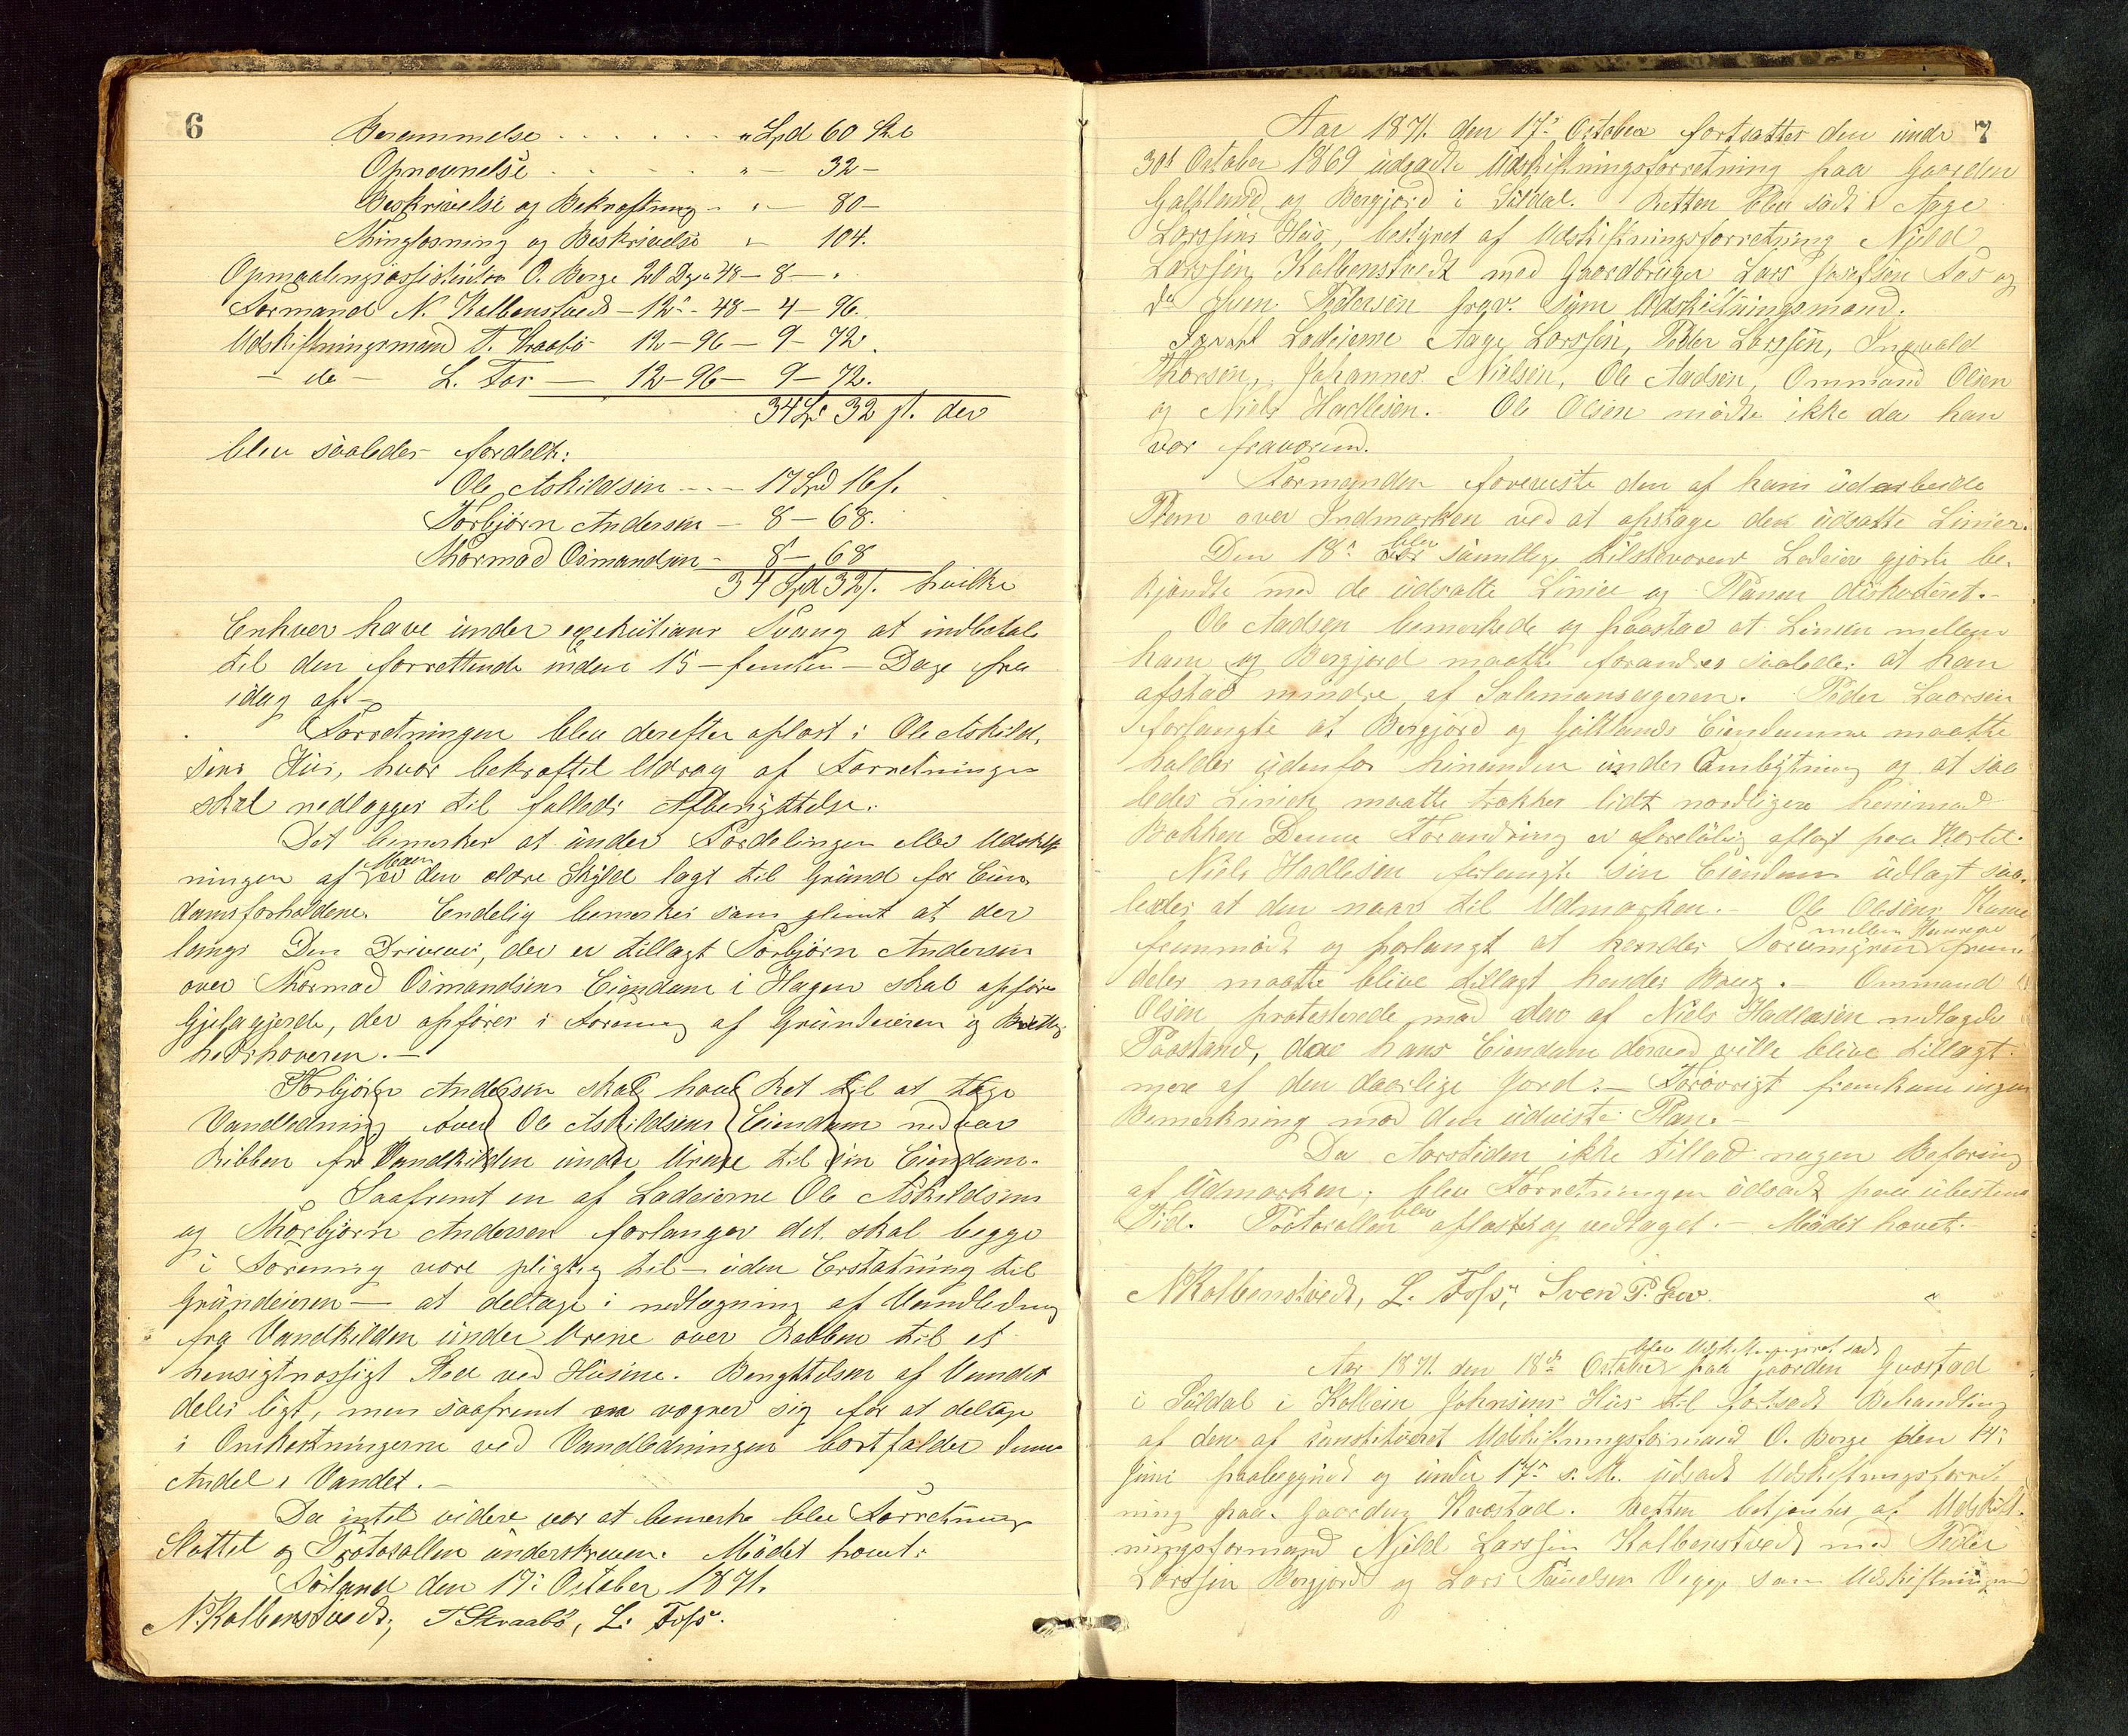 6
Berammelse . . . . . . " Spd 60 Skl
Opnævnelse . . . . . " — 32 —
Beskrivelse og Bekræftning - " — 80 —
Thinglæsning og Beskrivelse " — 104.
Opmaalingsassistenten O. Berge 20 Dge 48 — 8 — "
Formand N. Kolbenstvedt — 12 " - 48 — 4 — 96.
Udskiftningsmand T. Straabø 12 — 96 — 9 — 72.
— do — L. Fos — 12 — 96 — 9 — 72.
34 Sp 32 s. der
blev saaledes fordelt:
Ole Askildsen . . — 17 Spd 16 s.
Torbjørn Andersen — 8 — 68.
Thormod Osmundsen - 8 — 68
34 Spd 32 s. hvilke
Enhver have under executions Tvang at indbetale
til den forrettende inden 15 — femten — Dage fra
idag af. —
Forretningen blev derefter oplæst i Ole Askild-
sens Hus, hvor bekræftet Udrag af Forretningen
skal nedlægges til fælleds Afbenyttelse.
Det bemærkes at under Fordelingen eller Udskift-
ningen af Marken var den ældre Skyld lagt til Grund for Eien-
domsforholdene. Endelig bemærkes som glemt at der
langs Den Drivevei, der er tillagt Torbjørn Andersen
over Thormod Osmundsens Eiendom i Hagen skal opføres
Gjelagjerde, der opføres i Forening af Grundeieren og Rettig-
hedshaveren. —
Torbjørn Andersen skal have Ret til at tage
Vandledning over Ole Askildsens Eiendom nedover
Ribben fra Vandkilden under Urene til sin Eiendom.
Saafremt en af Lodeierne Ole Askildsen
og Thorbjørn Andersen forlanger det, skal begge
i Forening være pligtig til — uden Erstatning til
Grundeieren — at deltage i nedlægning af Vandledning
fra Vandkilden under Urene over Rabben til et
hensigtmæssigt Sted ved Husene. Benyttelsen af Vandet
deles ligt, men saafremt en vægrer sig for at deltage
i Omkostningerne ved Vandledningen bortfalder dennes
Andel i Vandet. —
Da intet videre var at bemærke blev Forretningen
sluttet og Protocollen underskreven. Mødet hævet.
Førland den 17: October 1871.
N Kolbenstvedt, T Straabø, L. Foss.
7
Aar 1871. den 17: October fortsattes den under
30t October 1869 udsadte Udskiftningsforretning paa Gaarden
Galtland og Bergjord i Suldal. Retten blev sadt i Aage
Larssens Hus, bestyret af Udskiftningsforretning Njeld
Larssen Kolbenstvedt med Gaardbruger Lars Josefsen Fos og
do Sven Pedersen Grov som Udskiftningsmænd.
Lodeierne Aage Larssen, Peder Larssen, Ingvald
Thorsen, Johannes Nielsen, Ole Aadsen, Ommund Olsen
og Niels Hadlesen. Ole Olsen mødte ikke da han
var fraværend.
Formanden foreviste den af ham udarbeide
Plan over Indmarken ved at opstage den udsatte Linier.
Den 18: blev samtlige tilstæværend Lodeier gjorte be-
kjendte med de udsatte Linier og Planen diskuteret. —
Ole Aadsen bemærkede og paastod at Linien mellem
ham og Bergjord maatte forandres saaledes at han
afstod mindre af Salomansageren. Peder Laarsen
forlangte at Bergjord og Galtlands Eiendomme maatte
holdes udenfor hinanden under Ombytning og at saa
ledes Linien maatte trækkes lidt nordligere henimod
Bakken Denne Forandring er foreløbig aflagt paa Kortet.
Niels Hadlesen forlangte sin Eiendom udlagt saa-
ledes at den naar til Udmarken. — Ole Olsens Kone
fremmødt og forlangt at hendes mellem Husene
deles maatte blive tillagt hendes Brug. — Ommund
Olsen protesterede mod den af Niels Hadlesen nedlagde
Paastand, da hans Eiendom derved ville blive tillagt
mere af den daarlige Jord. — Forøvrigt fremkom ingen
Bemærkning mod den udviste Plan. —
Da Aarstiden ikke tillod nogen Befaring
af Udmarken, blev Forretningen udsadt paa ubestemt
Tid. Protocollen blev oplæst og vedtaget. — Mødet hævet.
N Kolbenstvedt, L. Foss, Sven P. Grov.
Aar 1871. den 18de October blev Udskiftningsret sadt paa Gaarden Gvastad
i Suldal i Kolbein Johnsens Hus til fortsadt Behandling
af den af constitueret Udskiftningsformand O. Berge den 14:
Juni paabegyndt og under 17: s. M. udsadt Udskiftningsforret-
ning paa Gaarden Kvæstad. Retten betjentes af Udskift-
ningsformand Njeld Larssen Kolbenstvedt med Peder
Larssen Bergjord og Lars Poulsen Vegge som Udskiftningsmænd